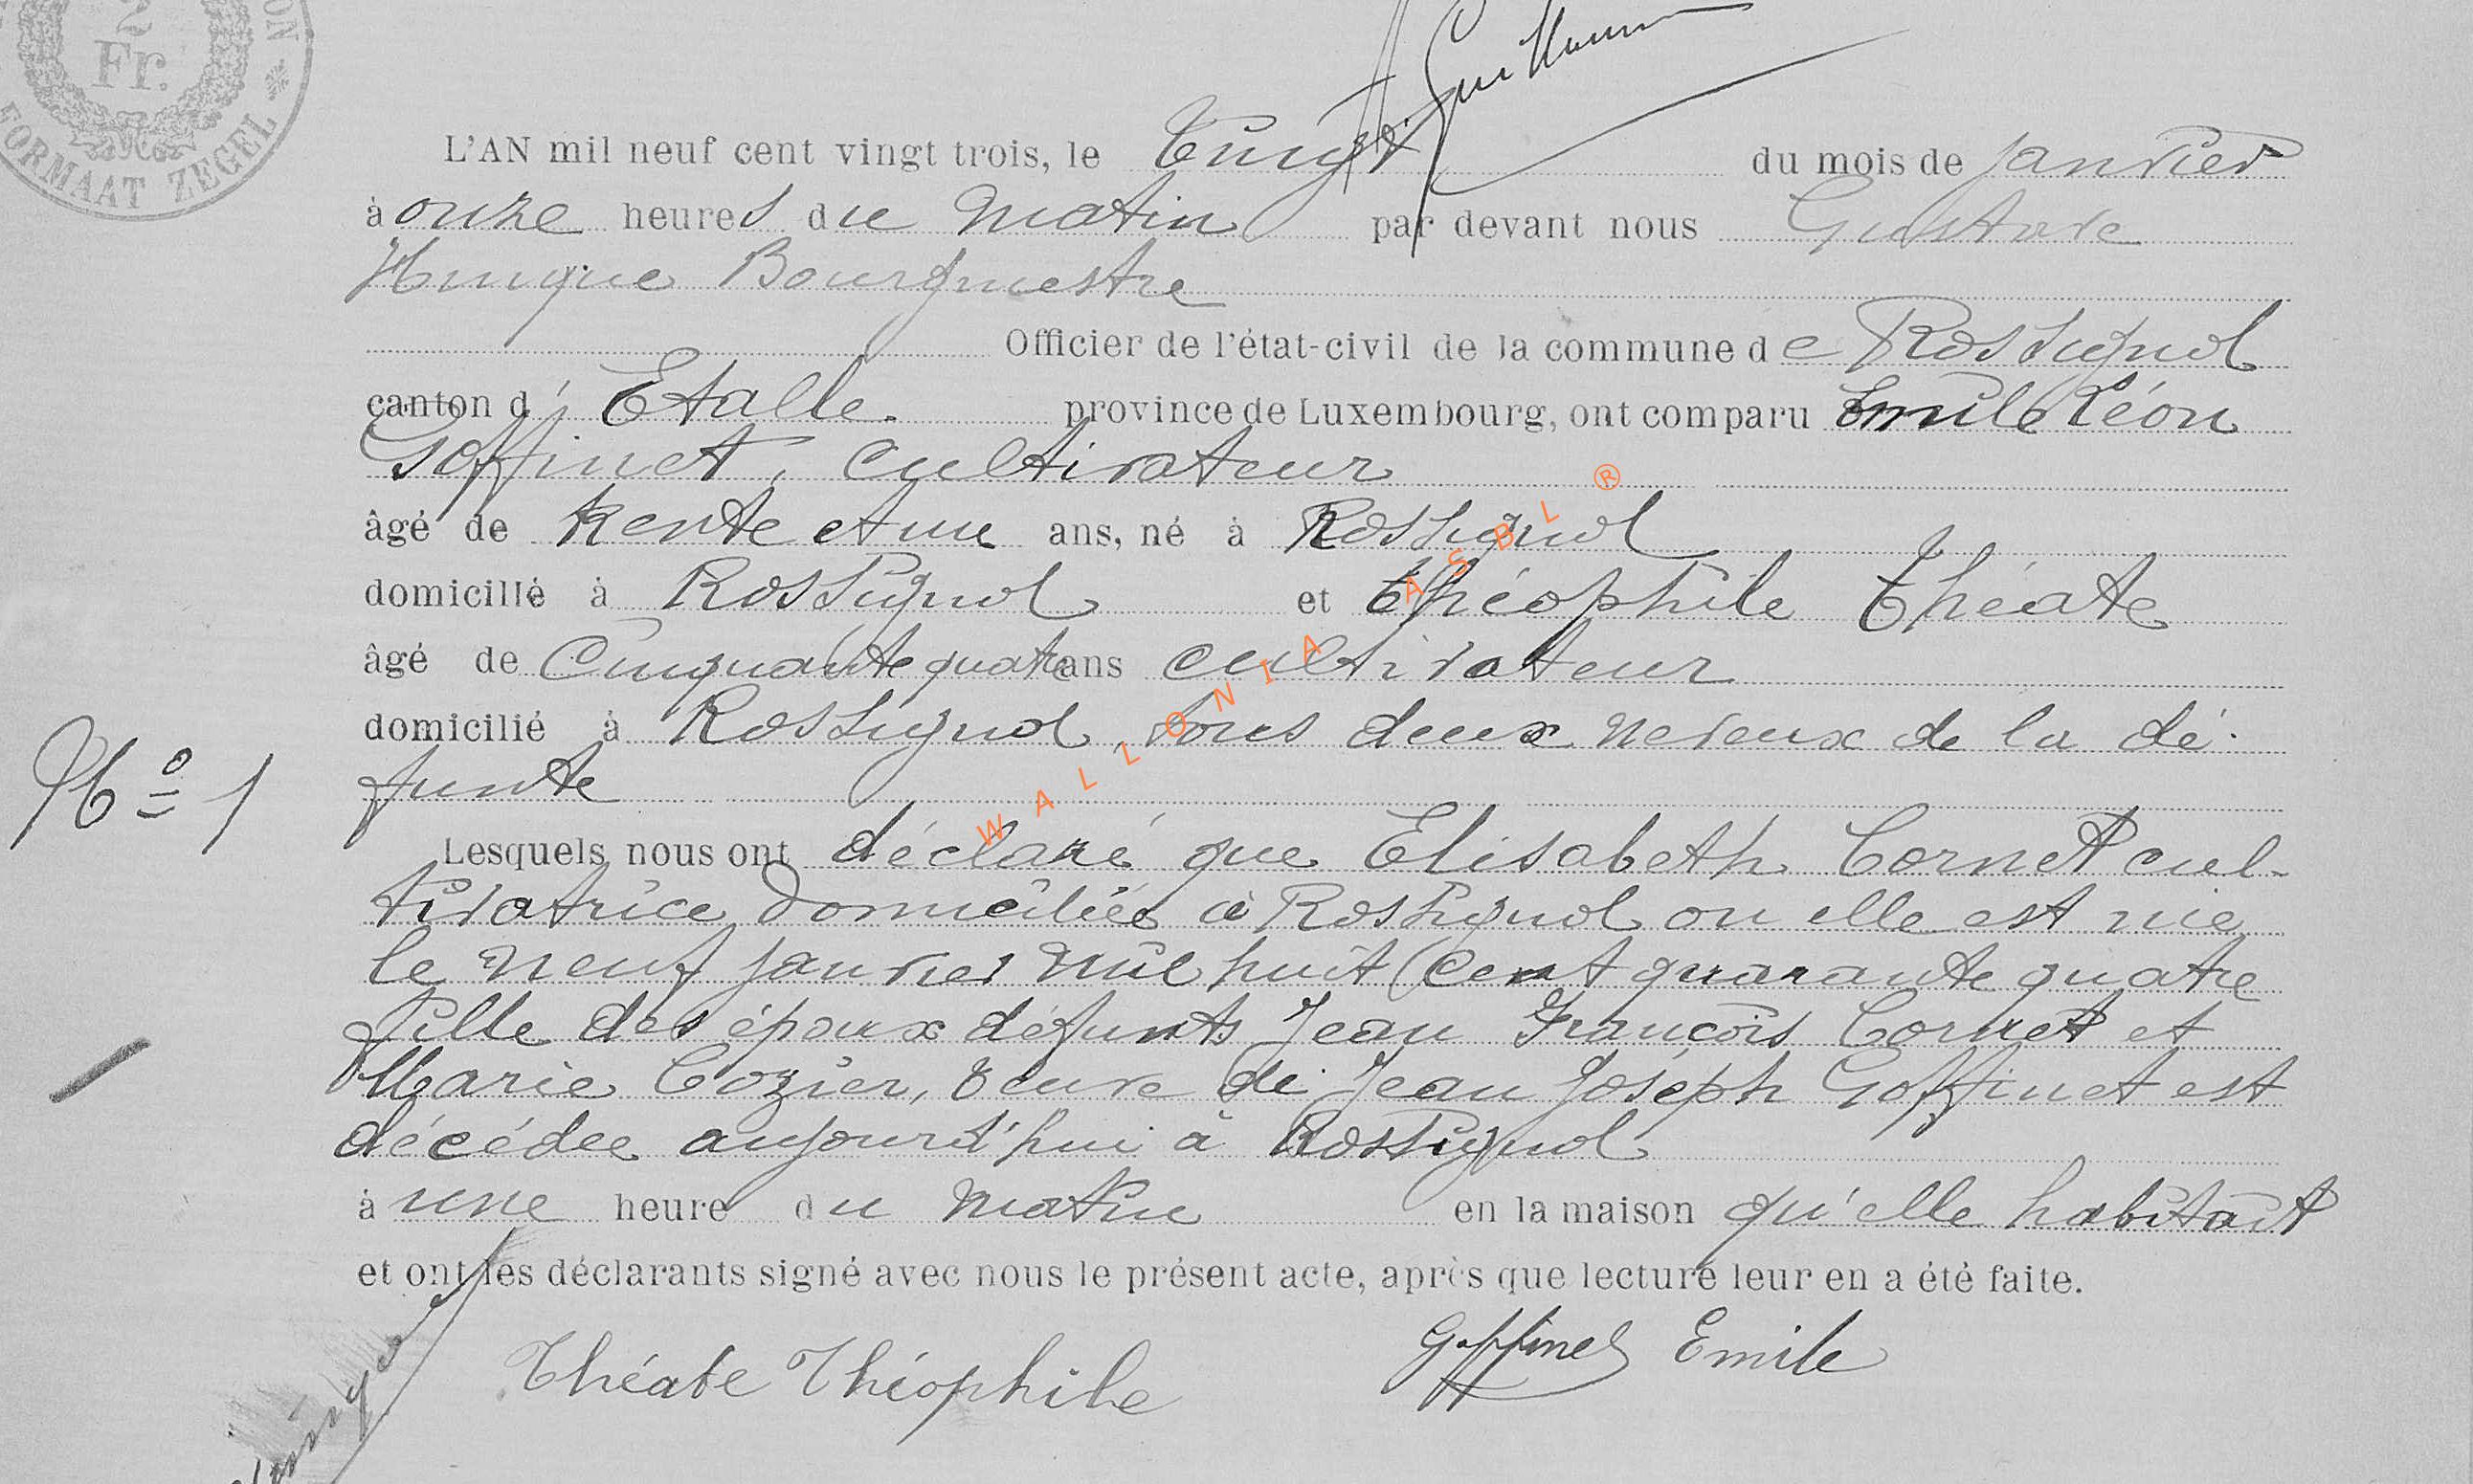 2
Fr.
FORMAAT ZEGEL
Guillaume
L'AN mil neuf cent vingt trois, le vingt du mois de janvier
à onze heures du matin par devant nous Gustave
Hinque Bourgmestre
Officier de l'état-civil de la commune de Rossignol
canton d' Etalle. province de Luxembourg, ont comparu Emile Léon
Goffinet, cultivateur
âgé de trente et un ans, né à Rossignol
domicilié à Rossignol et Théophile Théate
âgé de Cinquante quatre ans cultivateur
domicilié à Rossignol, tous deux neveux de la dé-
funte
No 1
Lesquels nous ont déclaré que Elisabeth Cornet cul-
tivatrice domiciliée à Rossignol ou elle est née
le neuf janvier mil huit Cent quarante quatre
fille des époux défunts Jean François Cornet et
Marie Cozier, veuve de Jean Joseph Goffinet est
décédée aujourd'hui à Rossignol
à une heure du matin en la maison qu'elle habitait
et ont les déclarants signé avec nous le présent acte, après que lecture leur en a été faite.
Théate Théophile
Goffinet Emile
WALLONIA ASBL ®